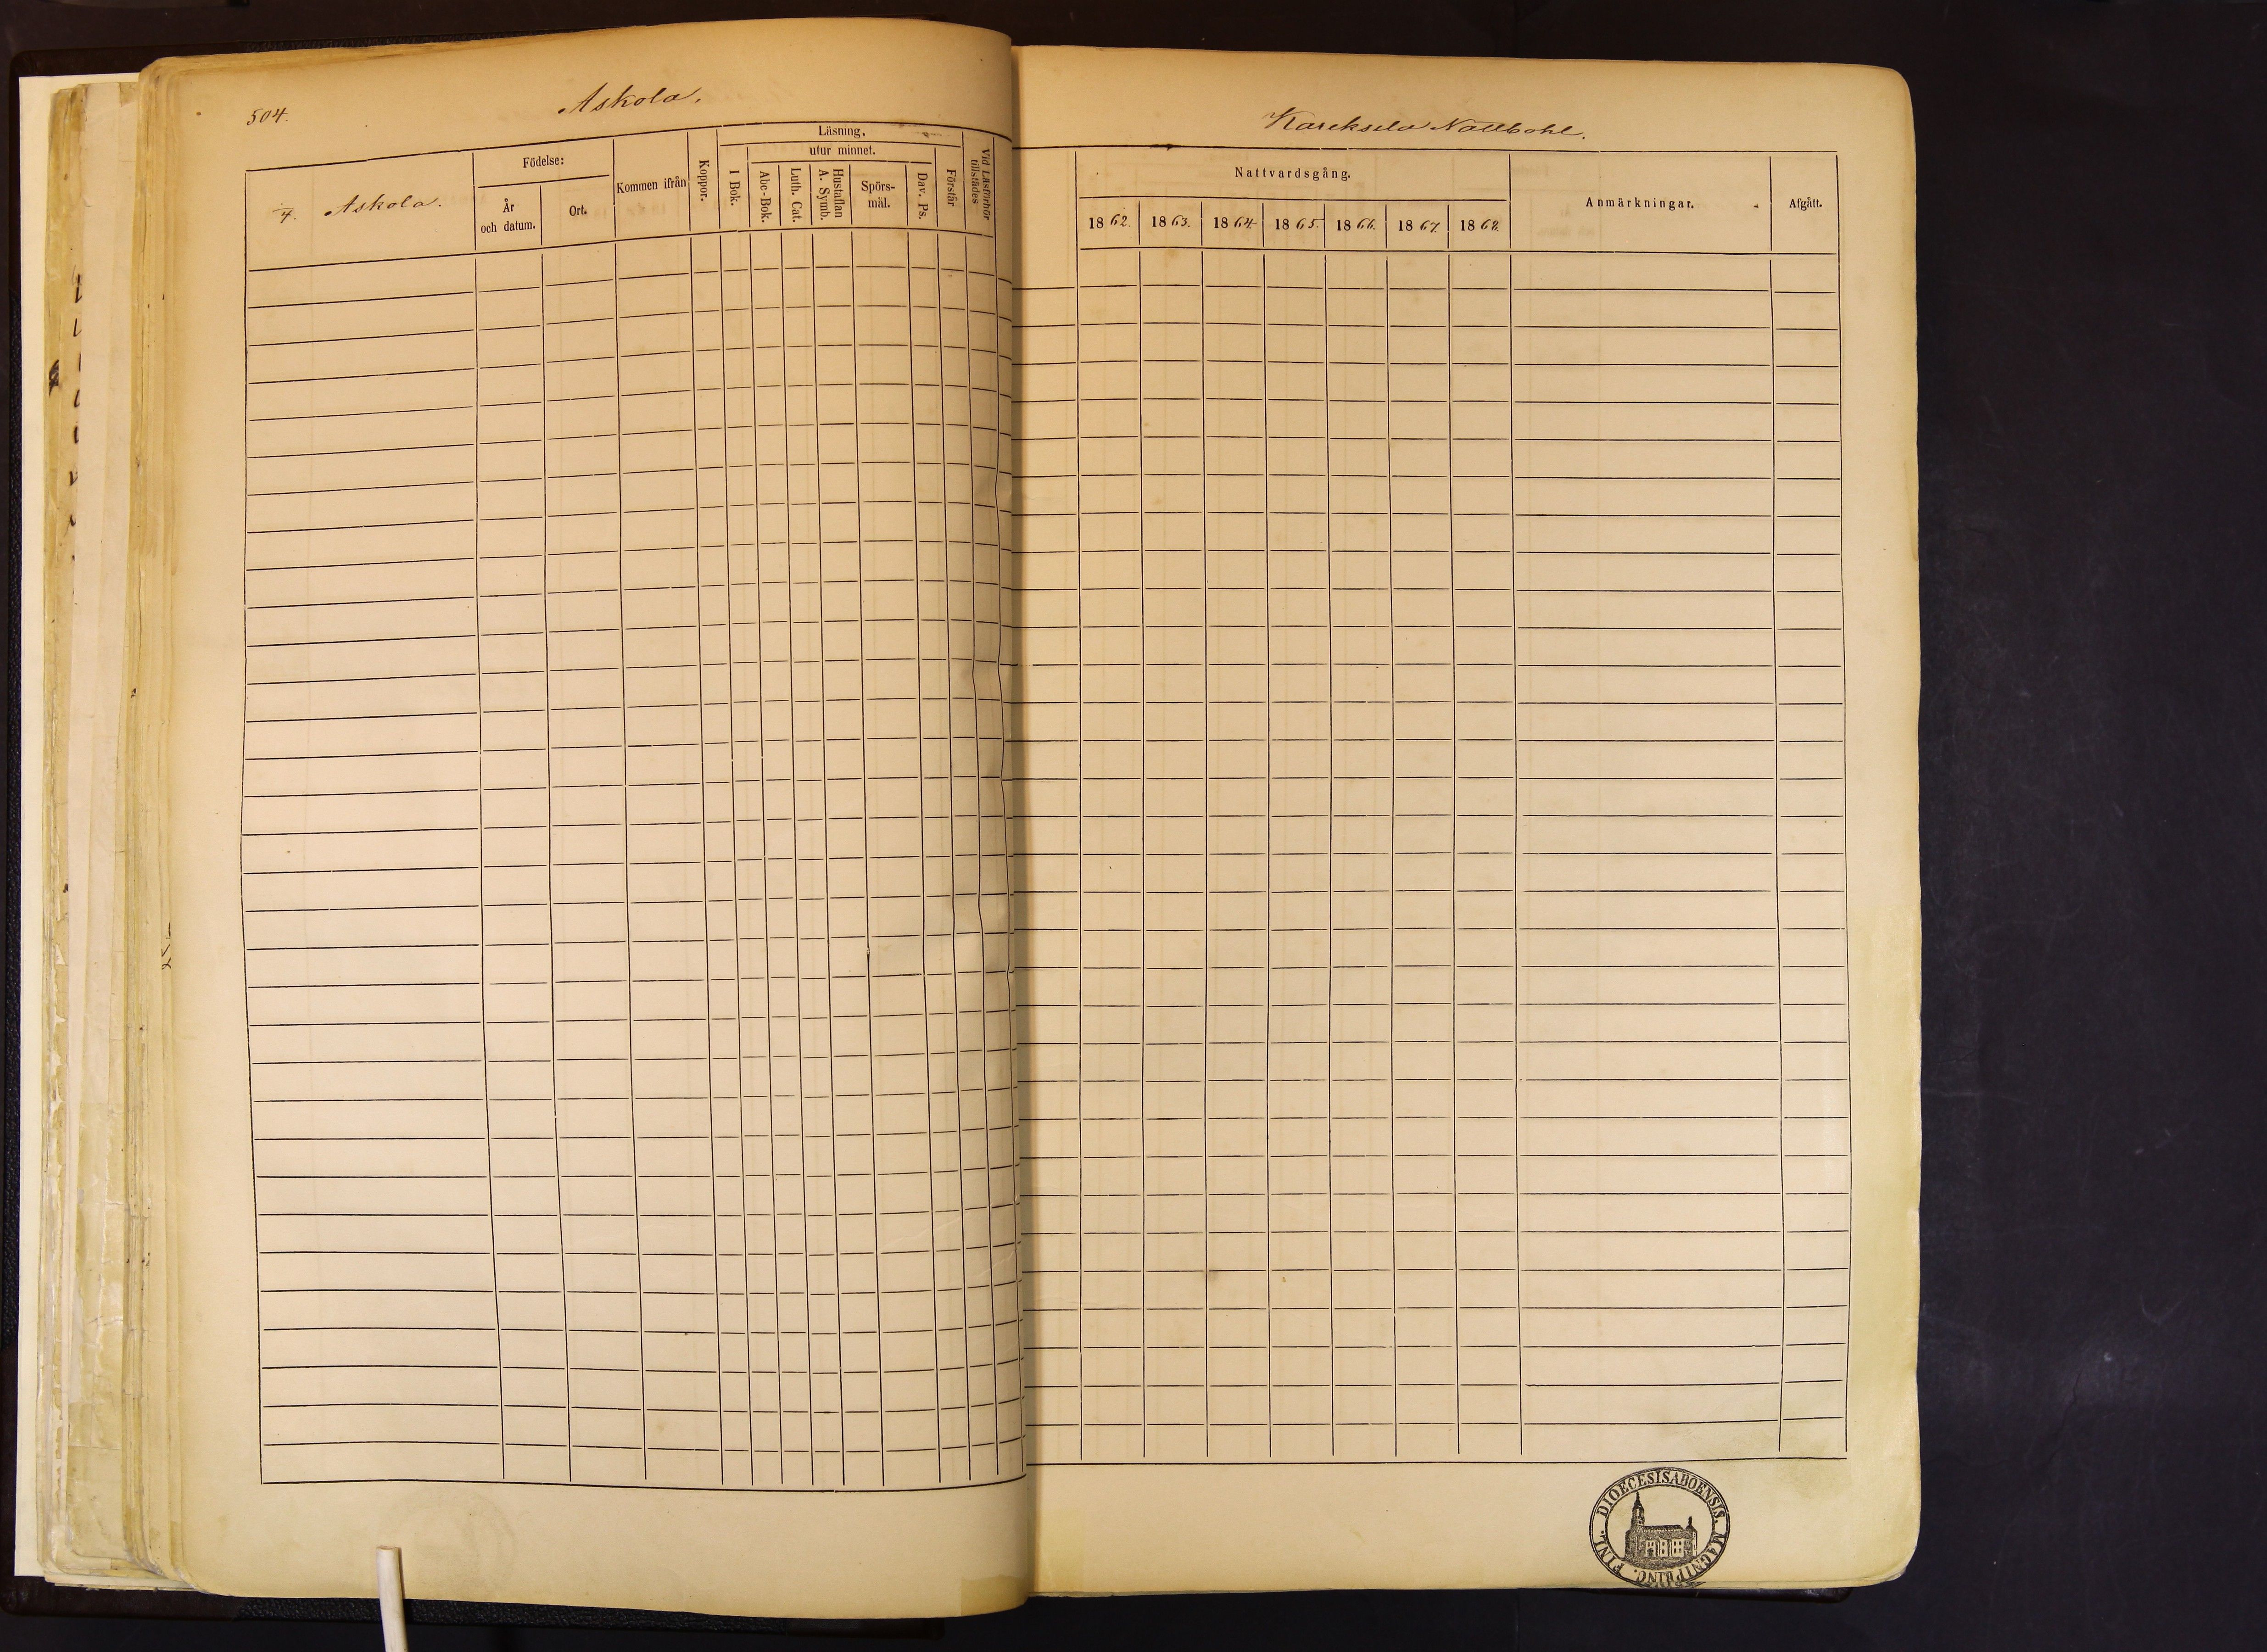 504.
Askola.
4. Askola.
Födelse:
År
och datum.
Ort.
Kommen ifrån
Koppor.
Läsning.
I Bok.
utur minnet.
Abc-Bok.
Luth. Cat.
Hustaflan
A. Symb.
Spörs-
mål.
Dav. Ps.
Förstår
Vid Läsförhör
tillstädes
Nallbohl.
Nattvardsgång.
1862.
1863.
1864
1865.
1866.
1867.
1868.
Anmärkningar.
Afgått.
DIOECESIS ABOENSIS. MAGNI PRINC. FINL.